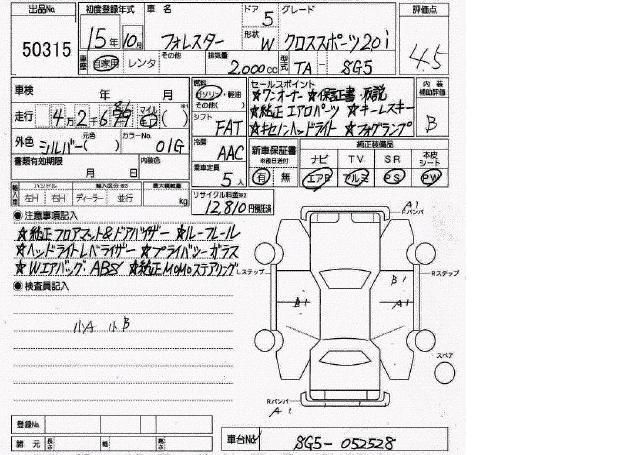 出品No. 50315
初度登録年式 15年10月
車名 フォレスター
ドア 5
形状 W
グレード クロススポーツ2.0i
評価点 4.5
車歴 自家用 レンタ その他
排気量 2,000cc
型式 TA- SG5
車検 年 月
走行 4万2千6
マイル
燃料 ガソリン・軽油 その他( )
シフト FAT
冷房 AAC
乗車定員 5人
外色 元色 シルバー( )
カラーNo. 01G
書類有効期限 月 日
内装色
セールスポイント
☆ワンオーナー ☆保証書・取説
☆純正エアロパーツ ☆キーレスキー
☆キセノンヘッドライト ☆フォグランプ
内装補助評価 B
新車保証書 ※後日送付 有 無
純正装備品
ナビ TV SR 本皮シート
エアB アルミ PS PW
輸入車 ハンドル 左H 右H
輸入区分 ディーラー 並行
最大積載量 kg
リサイクル料金 12,810円預託済
◉ 注意事項記入
☆純正フロアマット&ドアバイザー ☆ルーフレール
☆ヘッドライトレベライザー ☆プライバシーガラス
☆Wエアバッグ・ABS ☆純正MOMOステアリング
◉ 検査員記入
小A 小B
A1
Fバンパ
Lステップ
Rステップ
B1
B1
A1
スペア
Rバンパ
A1
登録No.
諸元 長さ 幅 高さ
車台No. SG5-052528